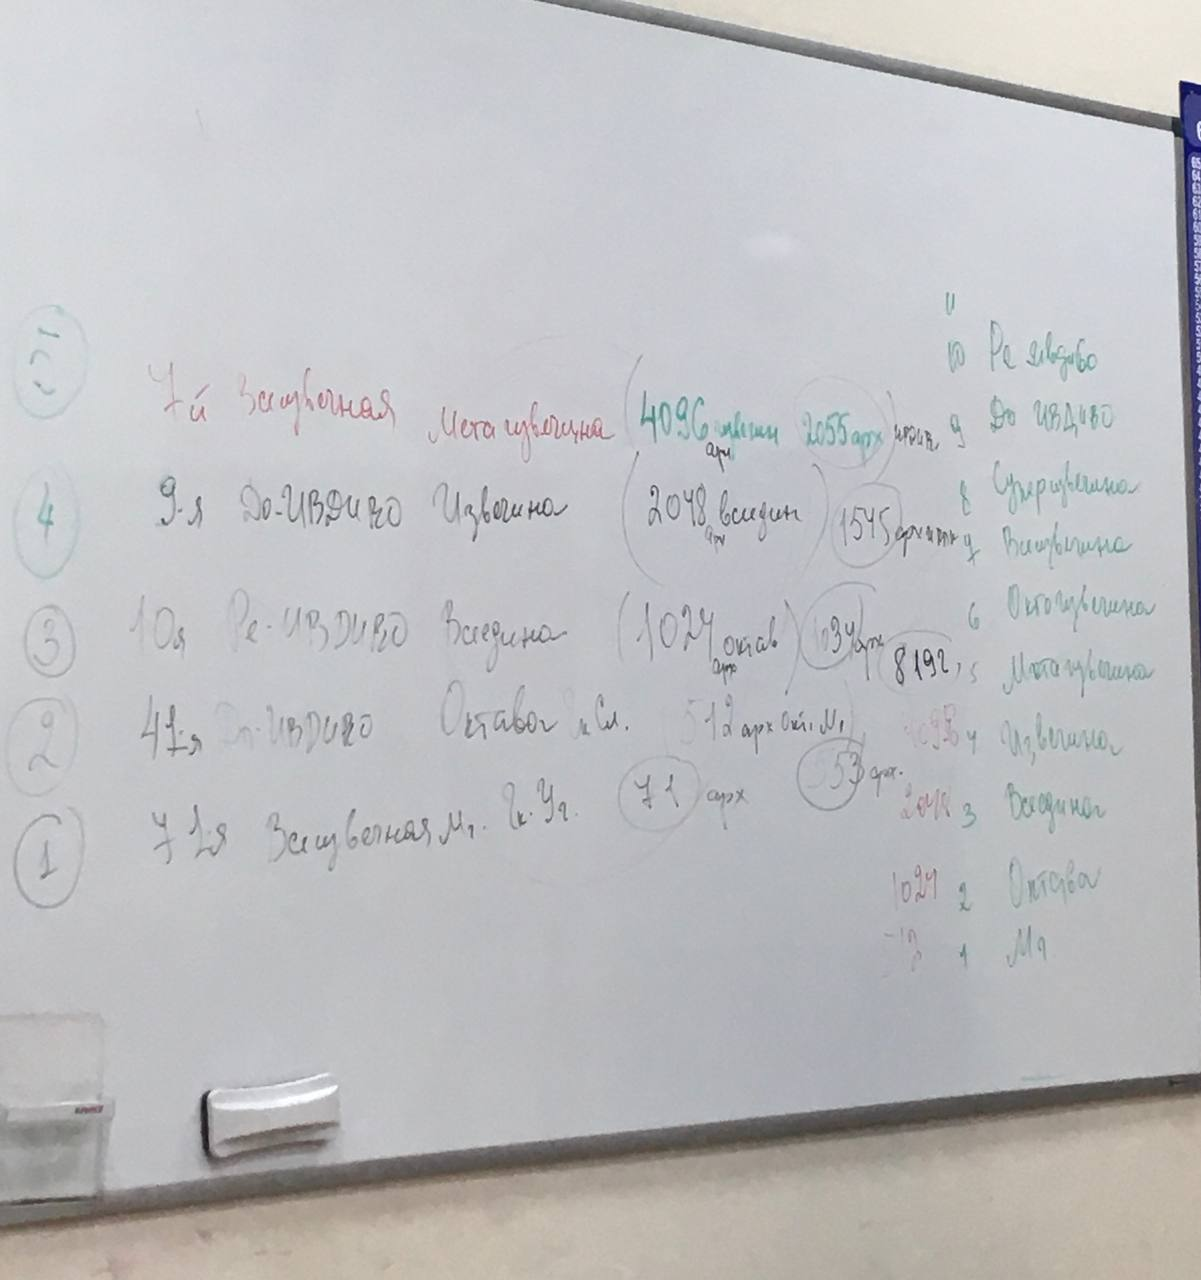 5
7й Всецвечная Метагувечина (4096 арх 2055 арх)
4 9-я До-ИВДИВО Извечина (2048 арх всеедин) 1545
3 10я Ре-ИВДИВО Всеедина (1024 арх октав) 1034 арх
2 41-я ИВДИВО Октавог Сл. 512 арх Окт. Мг
1 71-я Мг. Чк. Уг. 71 арх 553 арх.
11
10 Ре ИВДИВО
9 До ИВДИВО
8 Суперцвечина
7 Всецвечина
6 Октоцвечина
8192, 5 Метацвечина
4096 4 Извечина
2048 3 Всеедина
1024 2 Октава
512 1 Мг